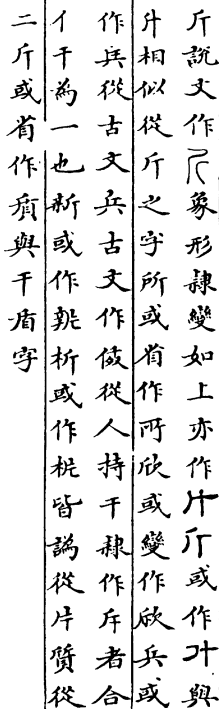 斤說文作象形隸變如上亦作或作與
升相似從斤之字所或省作欣或變作兵或
作兵從古文兵古文作從人持干隸作斥者合
亻干為一也新或作析或作皆譌從片質從
二斤或省作與干盾字